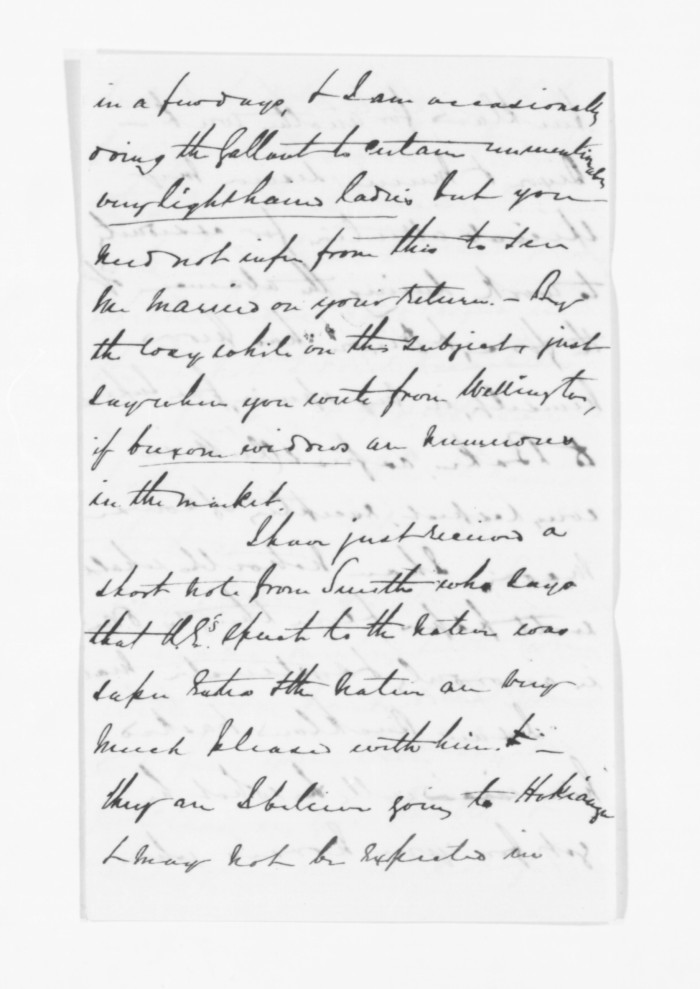 in a few days, & I am occasionally
doing the Gallant to certain unmentionable
very light haired ladies but you
need not infer from this to see
me married on your return. - By
the way while on this subject, just
say when you write from Wellington,
if buxom widows are numerous
in the market.
I have just received a
short note from Smith who says
that H.E's. speech to the natives was
super extra & the natives are very
much pleased with him. -
they are I believe going to Hokianga
& may not be expected in